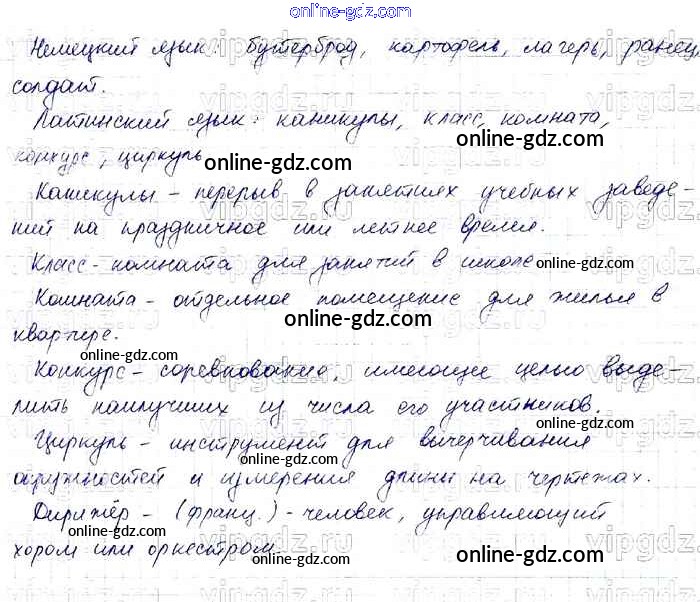 online-gdz.com
Немецкий язык: бутерброд, картофель, лагерь, ранец,
солдат.
Латинский язык: каникулы, класс, комната,
конкурс, циркуль
online-gdz.com
Каникулы - перерыв в занятиях учебных заведе-
ний на праздничное или летнее время.
Класс - комната для занятий в школе
online-gdz.com
Комната - отдельное помещение для жилья в
квартире.
online-gdz.com
online-gdz.com
Конкурс - соревнование, имеющее целью выде-
лить наилучших из числа его участников.
online-gdz.com
Циркуль - инструмент для вычерчивания
online-gdz.com
окружностей и измерения длины на чертежах.
Дирижёр - (франц.) - человек, управляющий
хором или оркестром.
online-gdz.com
online-gdz.com